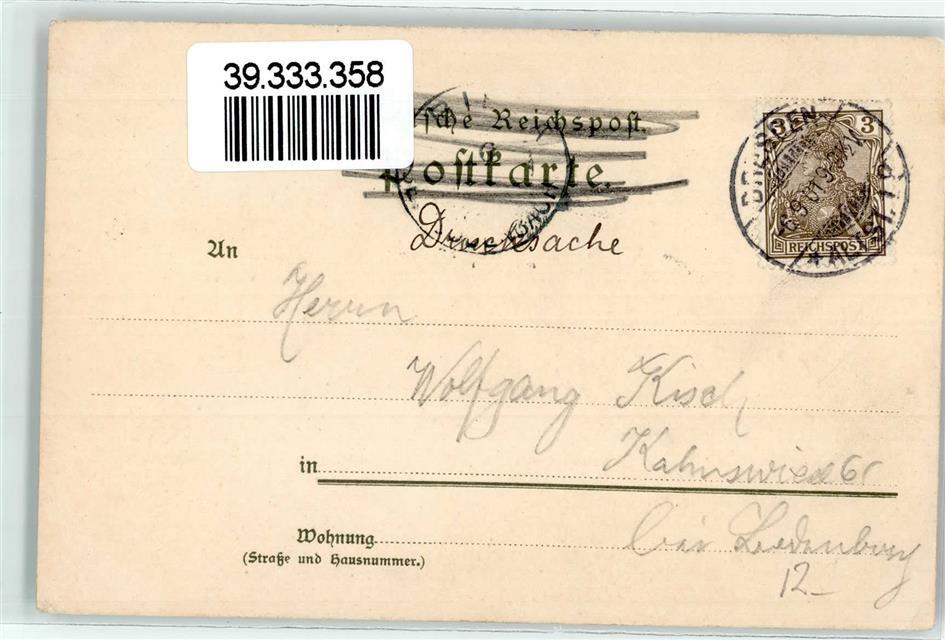 39.333.358
sche Reichspost.
Postkarte.
3 3
REICHSPOST
DRESDEN
ALTST. 19
Drucksache
An
Herrn
Wolfgang Kisch
in
bei
Wohnung
(Straße und Hausnummer.)
12_